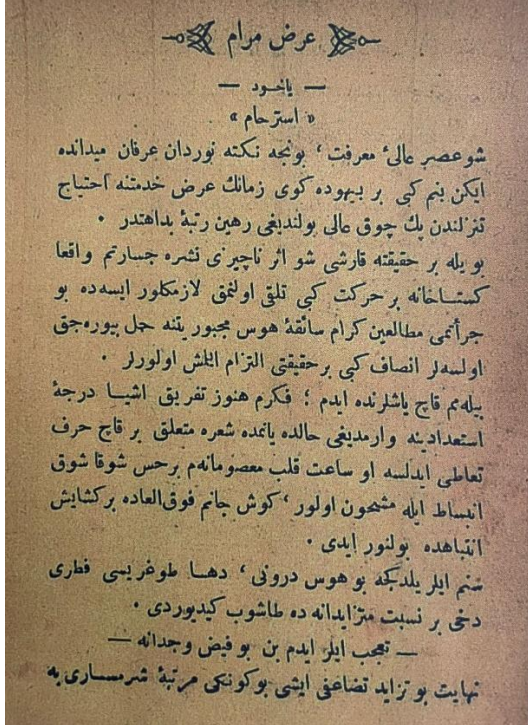 عرض مرام
— یاخود —
« استرحام »
شو عصر عالیٔ معرفت ، بونجه نکته نوردان عرفان میدانده
ایکن بنم کبی بر بیهوده کوی زمانك عرض خدمتنه احتیاج
تنزلندن پك چوق عالی بولندیغی رهین رتبهٔ بداهتدر ٠
بویله بر حقیقته قارشی شو اثر ناچیزی نشره جسارتم واقعا
کستاخانه بر حرکت کبی تلقی اولنمق لازمکلور ایسه‌ده بو
جرأتمی مطالعین کرام سائقهٔ هوس مجبوریتنه حمل بیوره‌جق
اولسه‌لر انصاف کبی بر حقیقتی التزام ایتمش اولورلر ٠
بیلمه‌م قاچ یاشلرنده ایدم ؛ فکرم هنوز تفریق اشیا درجهٔ
استعدادینه وارمدیغی حالده یانمده شعره متعلق بر قاچ حرف
تعاطی ایدلسه او ساعت قلب معصومانه‌م بر حس شوقا شوق
انبساط ایله مشحون اولور ، کوش جانم فوق‌العاده بر کشایش
انتباهده بولنور ایدی ٠
سنم ایلریلدکجه بو هوس درونی ، دها طوغریسی فطری
دخی بر نسبت متزایدانه ده طاشوب کیدیوردی ٠
— تعجب ایلر ایدم بن بو فیض وجدانه —
نهایت بو تزاید تضاعفی ایشی بوکونکی مرتبهٔ شرمساری یه